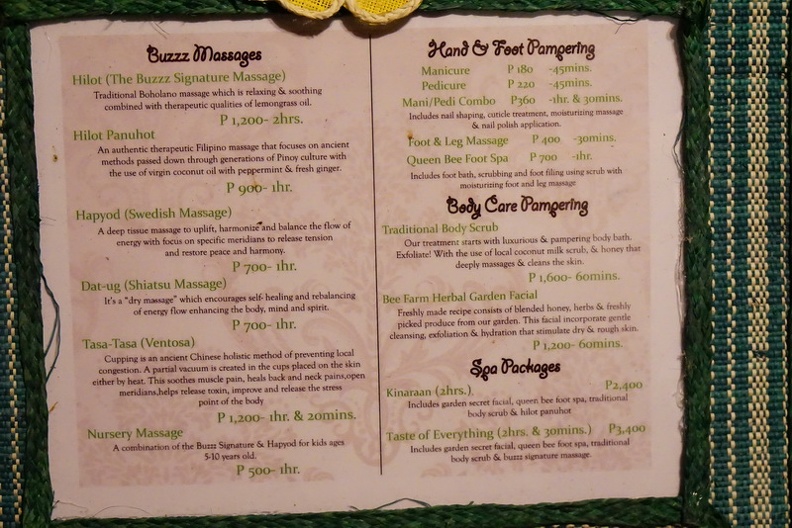 Buzzz Massages
Hilot (The Buzzz Signature Massage)
Traditional Boholano massage which is relaxing & soothing
combined with therapeutic qualities of lemongrass oil.
P 1,200- 2hrs.
Hilot Panuhot
An authentic therapeutic Filipino massage that focuses on ancient
methods passed down through generations of Pinoy culture with
the use of virgin coconut oil with peppermint & fresh ginger.
P 900- 1hr.
Hapyod (Swedish Massage)
A deep tissue massage to uplift, harmonize and balance the flow of
energy with focus on specific meridians to release tension
and restore peace and harmony.
P 700- 1hr.
Dat-ug (Shiatsu Massage)
It's a "dry massage" which encourages self- healing and rebalancing
of energy flow enhancing the body, mind and spirit.
P 700- 1hr.
Tasa-Tasa (Ventosa)
Cupping is an ancient Chinese holistic method of preventing local
congestion. A partial vacuum is created in the cups placed on the skin
either by heat. This soothes muscle pain, heals back and neck pains,open
meridians,helps release toxin, improve and release the stress
point of the body
P 1,200- 1hr & 20mins.
Nursery Massage
A combination of the Buzzz Signature & Hapyod for kids ages
5-10 years old.
P 500- 1hr.
Hand & Foot Pampering
Manicure P 180 -45mins.
Pedicure P 220 -45mins.
Mani/Pedi Combo P360 -1hr. & 30mins.
Includes nail shaping, cuticle treatment, moisturizing massage
& nail polish application.
Foot & Leg Massage P 400 -30mins.
Queen Bee Foot Spa P 700 -1hr.
Includes foot bath, scrubbing and foot filing using scrub with
moisturizing foot and leg massage
Body Care Pampering
Traditional Body Scrub
Our treatment starts with luxurious & pampering body bath.
Exfoliate! With the use of local coconut milk scrub, & honey that
deeply massages & cleans the skin.
P 1,600- 60mins.
Bee Farm Herbal Garden Facial
Freshly made recipe consists of blended honey, herbs & freshly
picked produce from our garden. This facial incorporate gentle
cleansing, exfoliation & hydration that stimulate dry & rough skin.
P 1,200- 60mins.
Spa Packages
Kinaraan (2hrs.) P2,400
Includes garden secret facial, queen bee foot spa, traditional
body scrub & hilot panuhot
Taste of Everything (2hrs. & 30mins.) P3,400
Includes garden secret facial, queen bee foot spa, traditional
body scrub & buzzz signature massage.